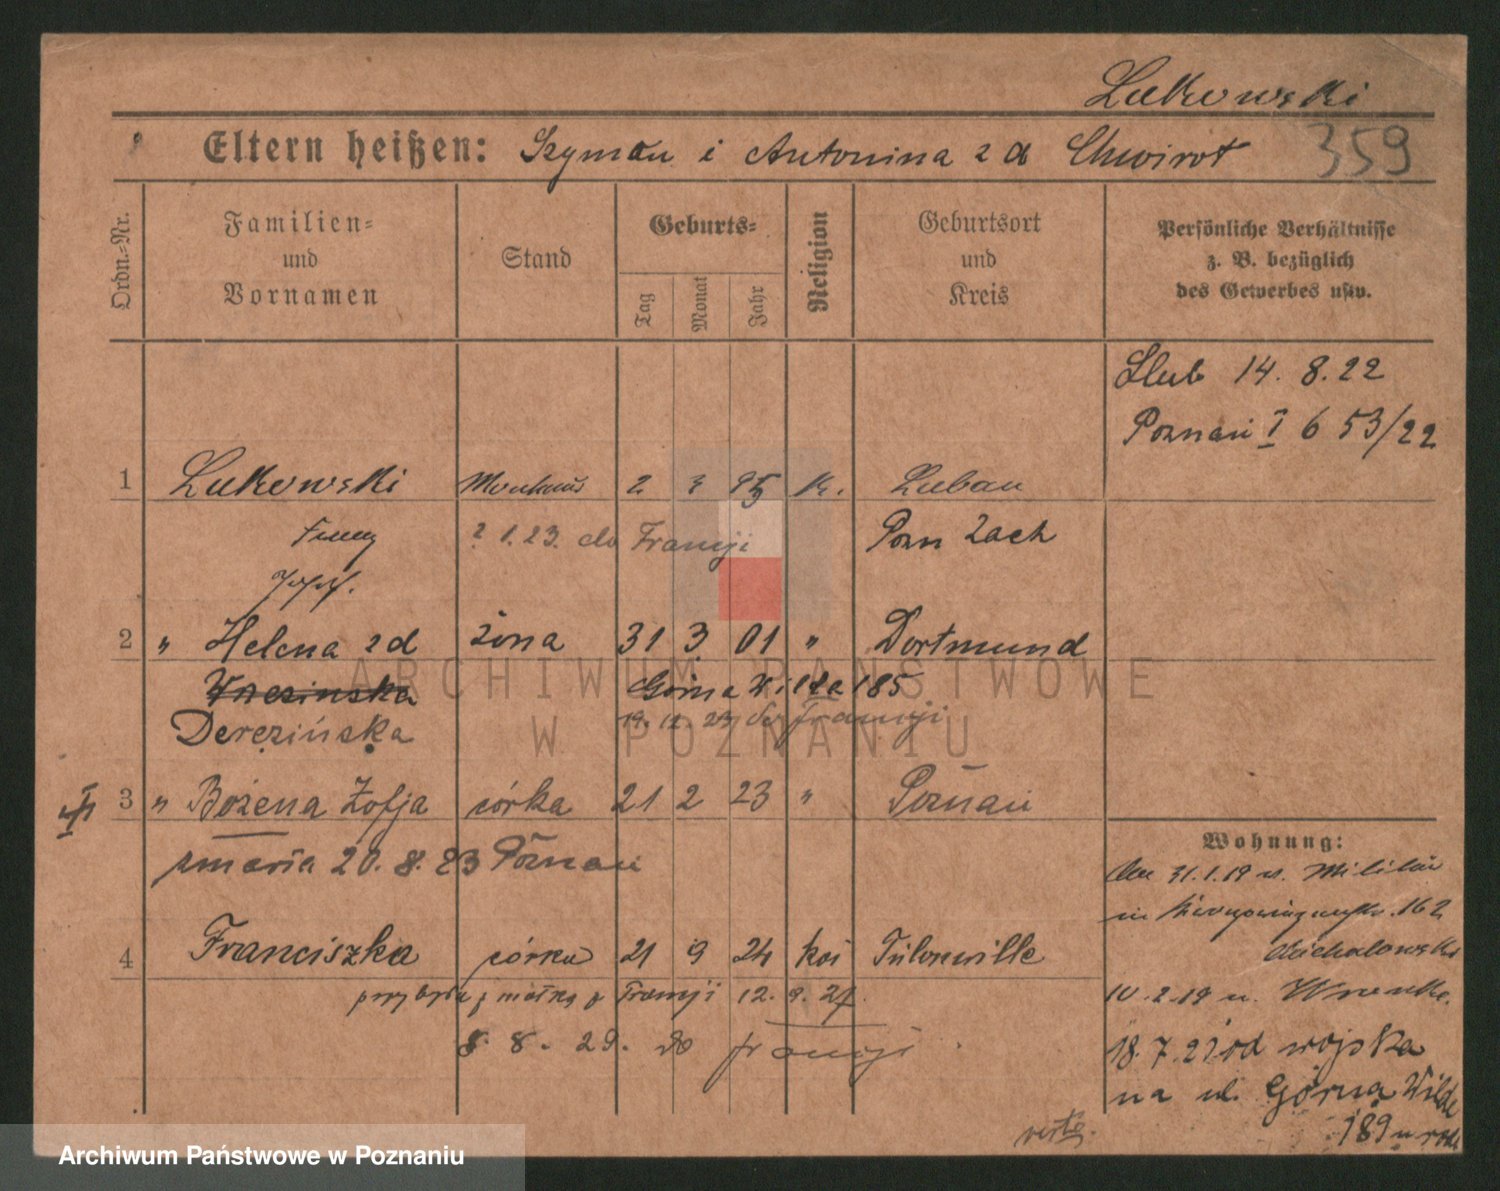 Lukowski
359
Eltern heißen: Szyman i Antonina z d Chwirot
Ordn.-Nr.
Familien- und Vornamen
Stand
Geburts-
Tag
Monat
Jahr
Religion
Geburtsort und Kreis
Persönliche Verhältnisse z. B. bezüglich des Gewerbes usw.
Slub 14. 8. 22
Poznań I 6 53/22
1 Lukowski 2 95 K. Luban
1.23. do Francji Pozn Zach
Józef.
2 " Helena z d żona 31 3 01 " Dortmund
Górna Wilda 185
Derezińska 19. 12. 23 do Francji
3 " Bożena Zofja córka 21 2 23 " Poznań
zmarła 20. 8. 23 Poznań
Wohnung:
31.1.19 v. Militär
in 162
4 Franciszka córka 21 9 24 Tülonville
Michalowski
przybyła z matką z Francji 12. 9. 27.
10.2.19 n. Wronke.
8. 8. 29. do Francji
18. 7. 21 od wojska
na ul. Górna Wilda
189 u
verte.
ARCHIWUM PAŃSTWOWE
W POZNANIU
Archiwum Państwowe w Poznaniu